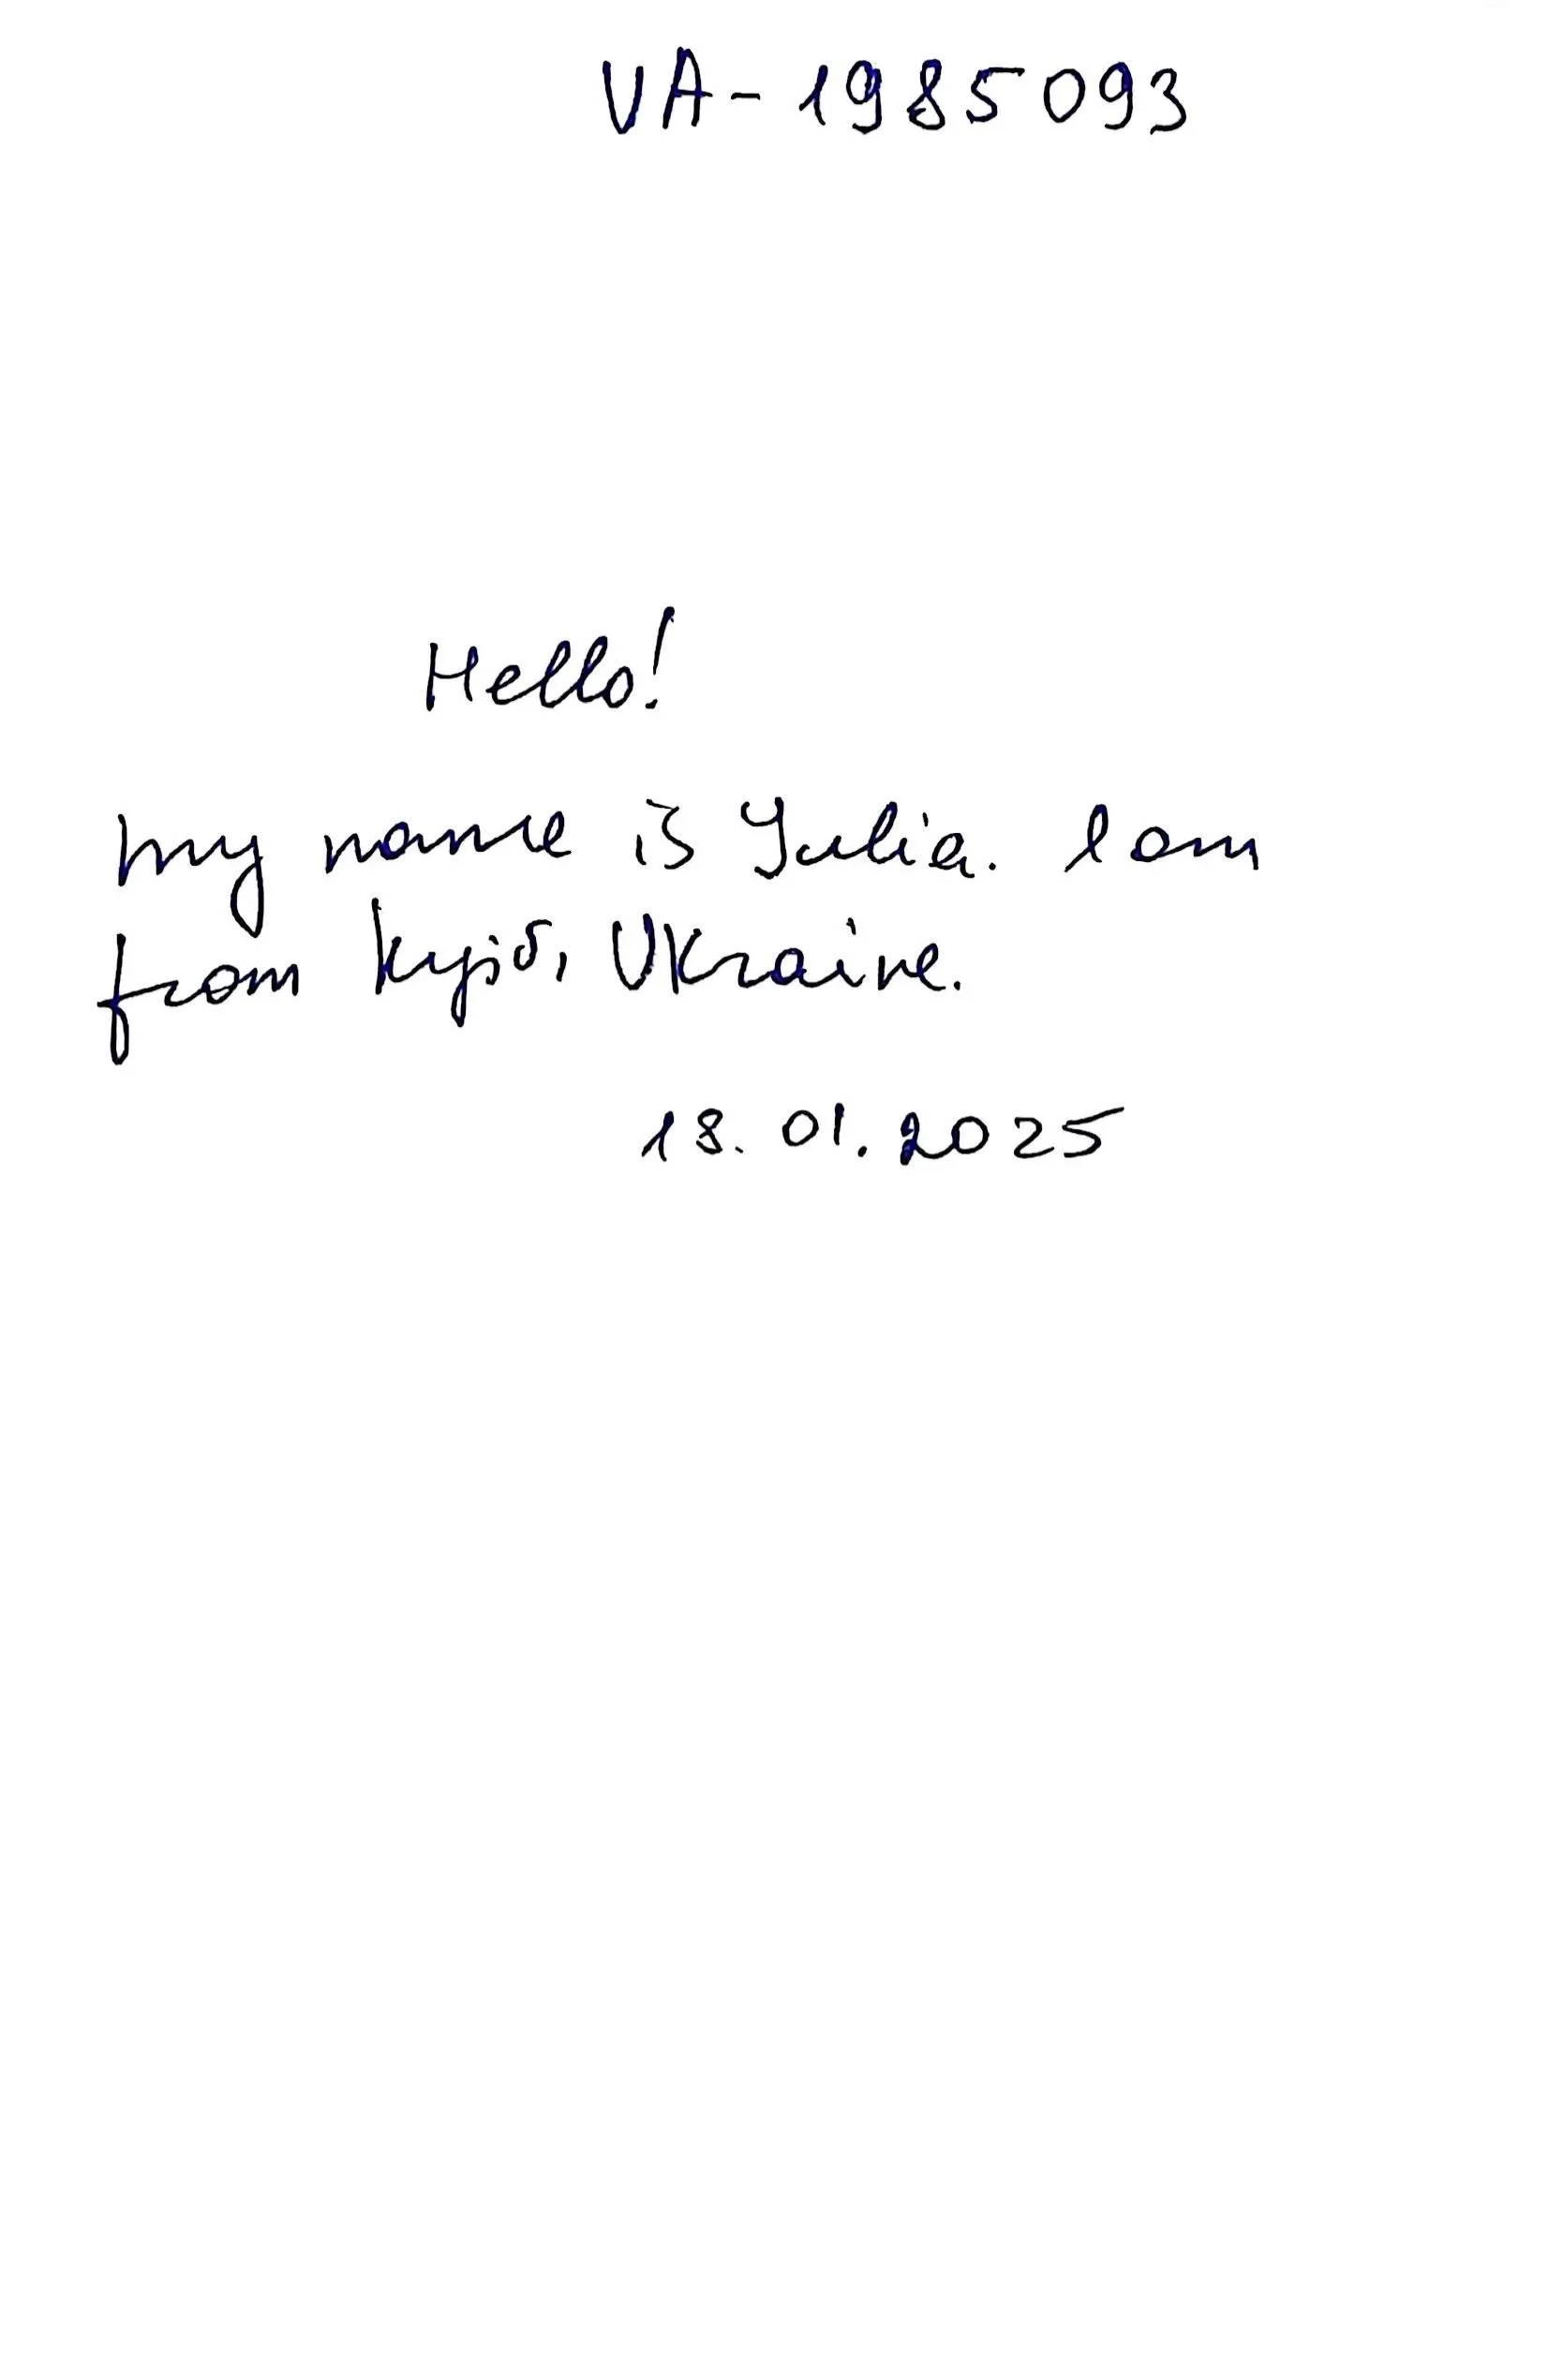 VA-1985093
Hello!
My name is Yulia. I am
from Kyiv, Ukraine.
18.01.2025